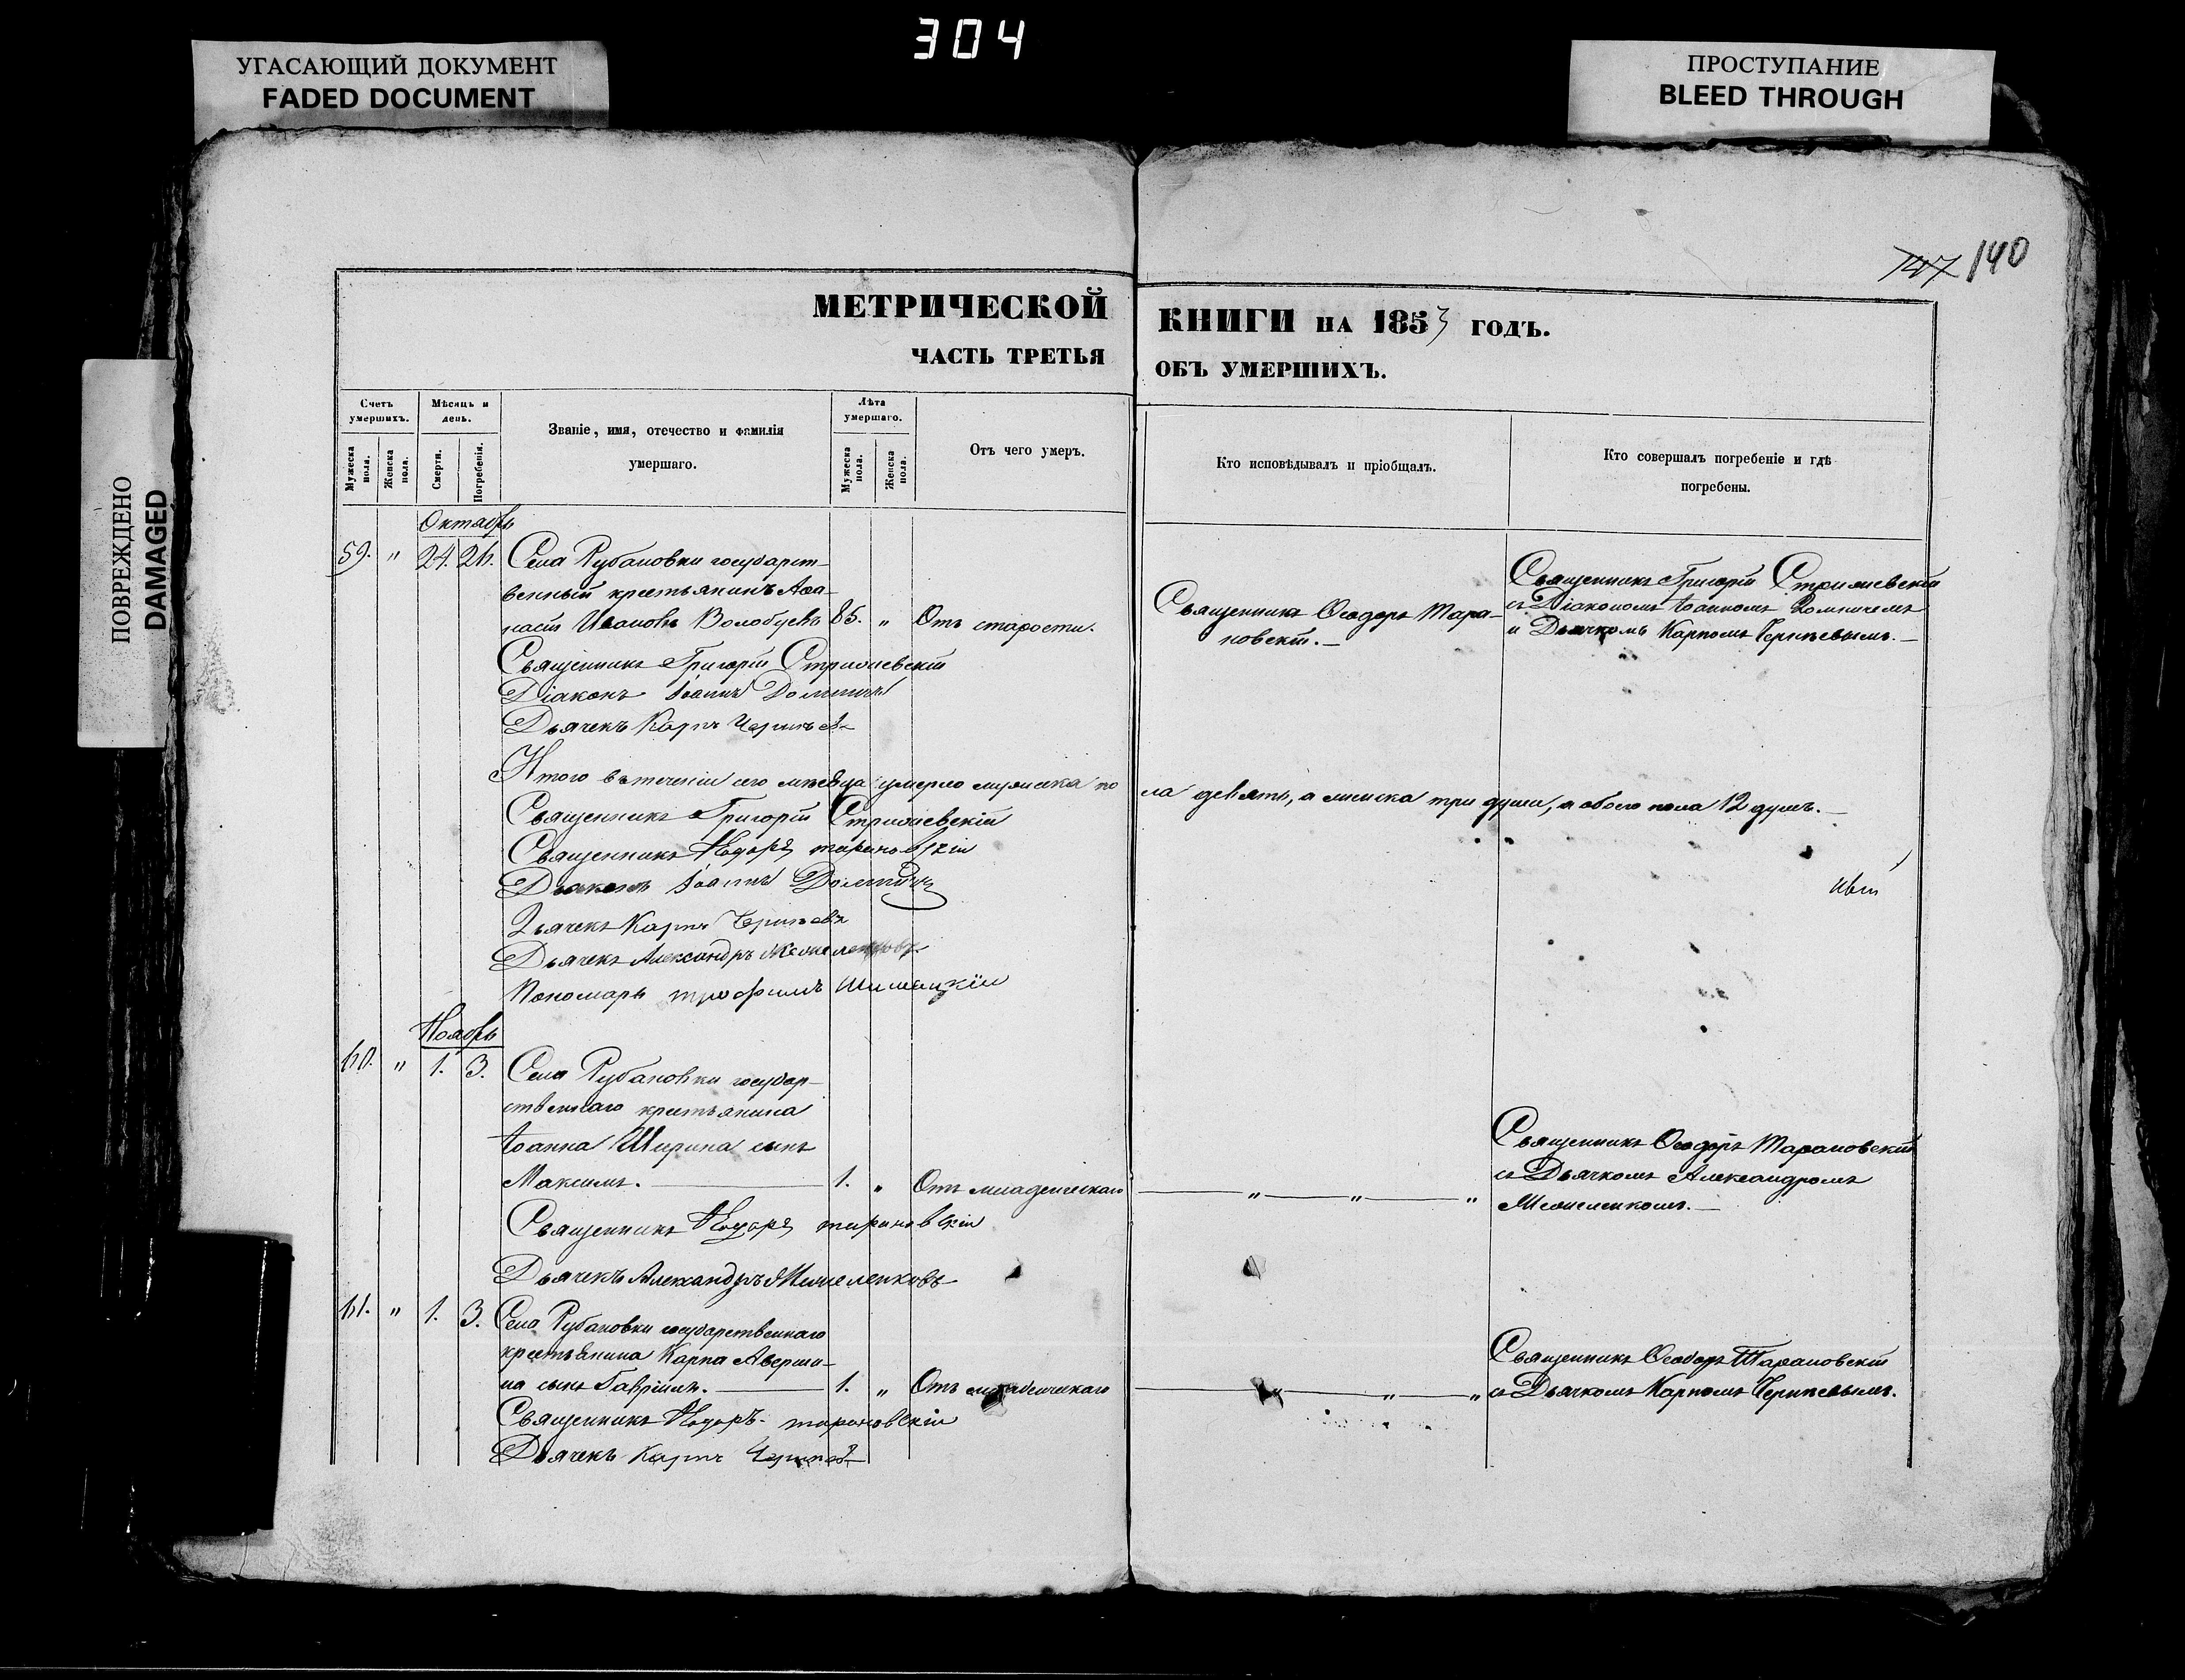 304
УГАСАЮЩИЙ ДОКУМЕНТ
FADED DOCUMENT
ПРОСТУПАНИЕ
BLEED THROUGH
ПОВРЕЖДЕНО
DAMAGED
147 140
МЕТРИЧЕСКОЙ КНИГИ НА 1853 ГОДЪ.
ЧАСТЬ ТРЕТЬЯ ОБЪ УМЕРШИХЪ.
Счетъ умершихъ.
Мужеска пола.
Женска пола.
Мѣсяцъ и день.
Смерти.
Погребенія.
Званіе, имя, отечество и фамилія
умершаго.
Лѣта умершаго.
Мужеска пола.
Женска пола.
Отъ чего умеръ.
Кто исповѣдывалъ и пріобщалъ.
Кто совершалъ погребеніе и гдѣ
погребены.
Октябрь
59. " 24. 26. Села Рубановки государст-
венный крестьянинъ Аѳа-
насій Ивановъ Волобуевъ 85. " Отъ старости.
Священникъ Ѳеодоръ Тара-
новскій.
Священникъ Григорій
съ Діакономъ Іоанномъ
и Дьячкомъ Карпомъ
Священникъ Григорій
Діаконъ Іоаннъ
Дьячекъ Карпъ
Итого въ теченіи сего мѣсяца умерло мужеска по ла девять, а женска три души, а обоего пола 12 душъ.
Священникъ Григорій
Священникъ Ѳеодоръ Тарановскій
Діаконъ Іоаннъ
Дьячекъ Карпъ
Дьячекъ Александръ
Пономарь Трофимъ
Ноябрь
60. " 1. 3. Села Рубановки государ-
ственнаго крестьянина
Іоанна Ширина сынъ
Максимъ. 1. " Отъ младенческаго " " "
Священникъ Ѳеодоръ Тарановскій
съ Дьячкомъ Александромъ
Священникъ Ѳеодоръ Тарановскій
Дьячекъ Александръ
61. " 1. 3. Села Рубановки государственнаго
крестьянина Карпа Аверши-
на сынъ Гавріилъ. 1. " Отъ младенческаго " " "
Священникъ Ѳеодоръ Тарановскій
съ Дьячкомъ Карпомъ
Священникъ Ѳеодоръ Тарановскій
Дьячекъ Карпъ